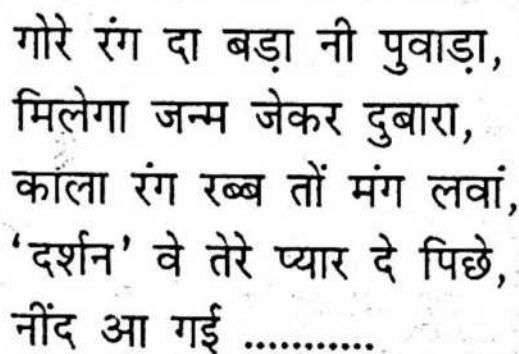 गोरे रंग दा बड़ा नी पुवाड़ा,
मिलेगा जन्म जेकर दुबारा,
काला रंग रब्ब तों मंग लवां,
‘दर्शन’ वे तेरे प्यार दे पिछे,
नींद आ गई ...........